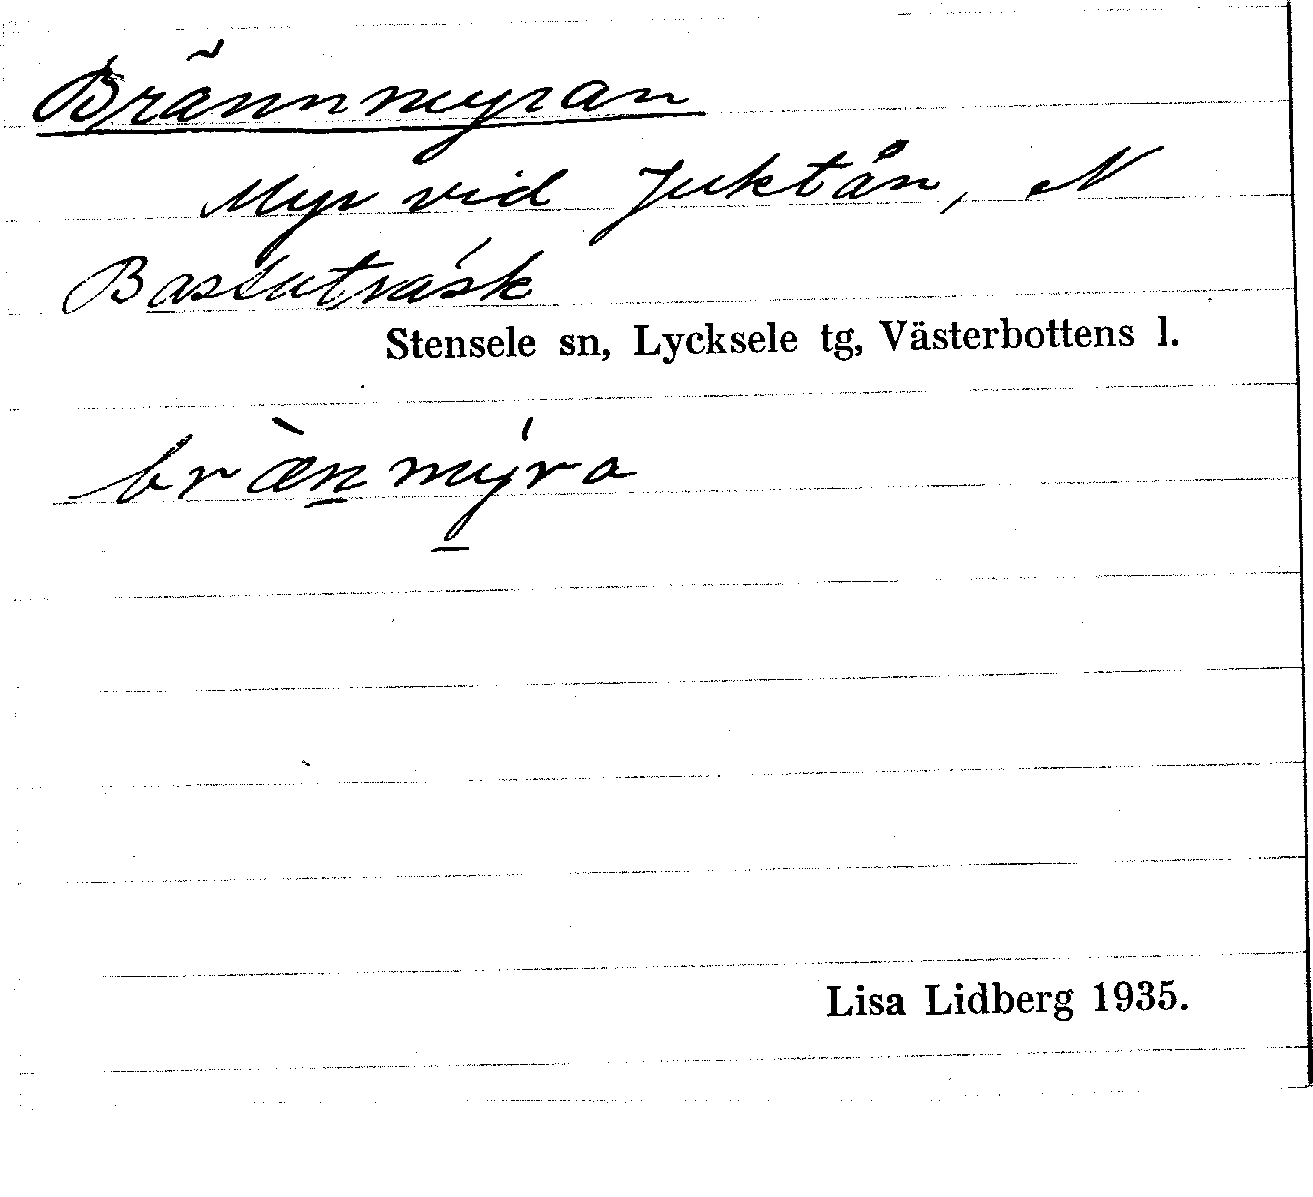 Brännmyran
Myr vid Juktån, N
Bastuträsk
Stensele sn, Lycksele tg, Västerbottens l.
bræ̀n̲mý̲ra
Lisa Lidberg 1935.